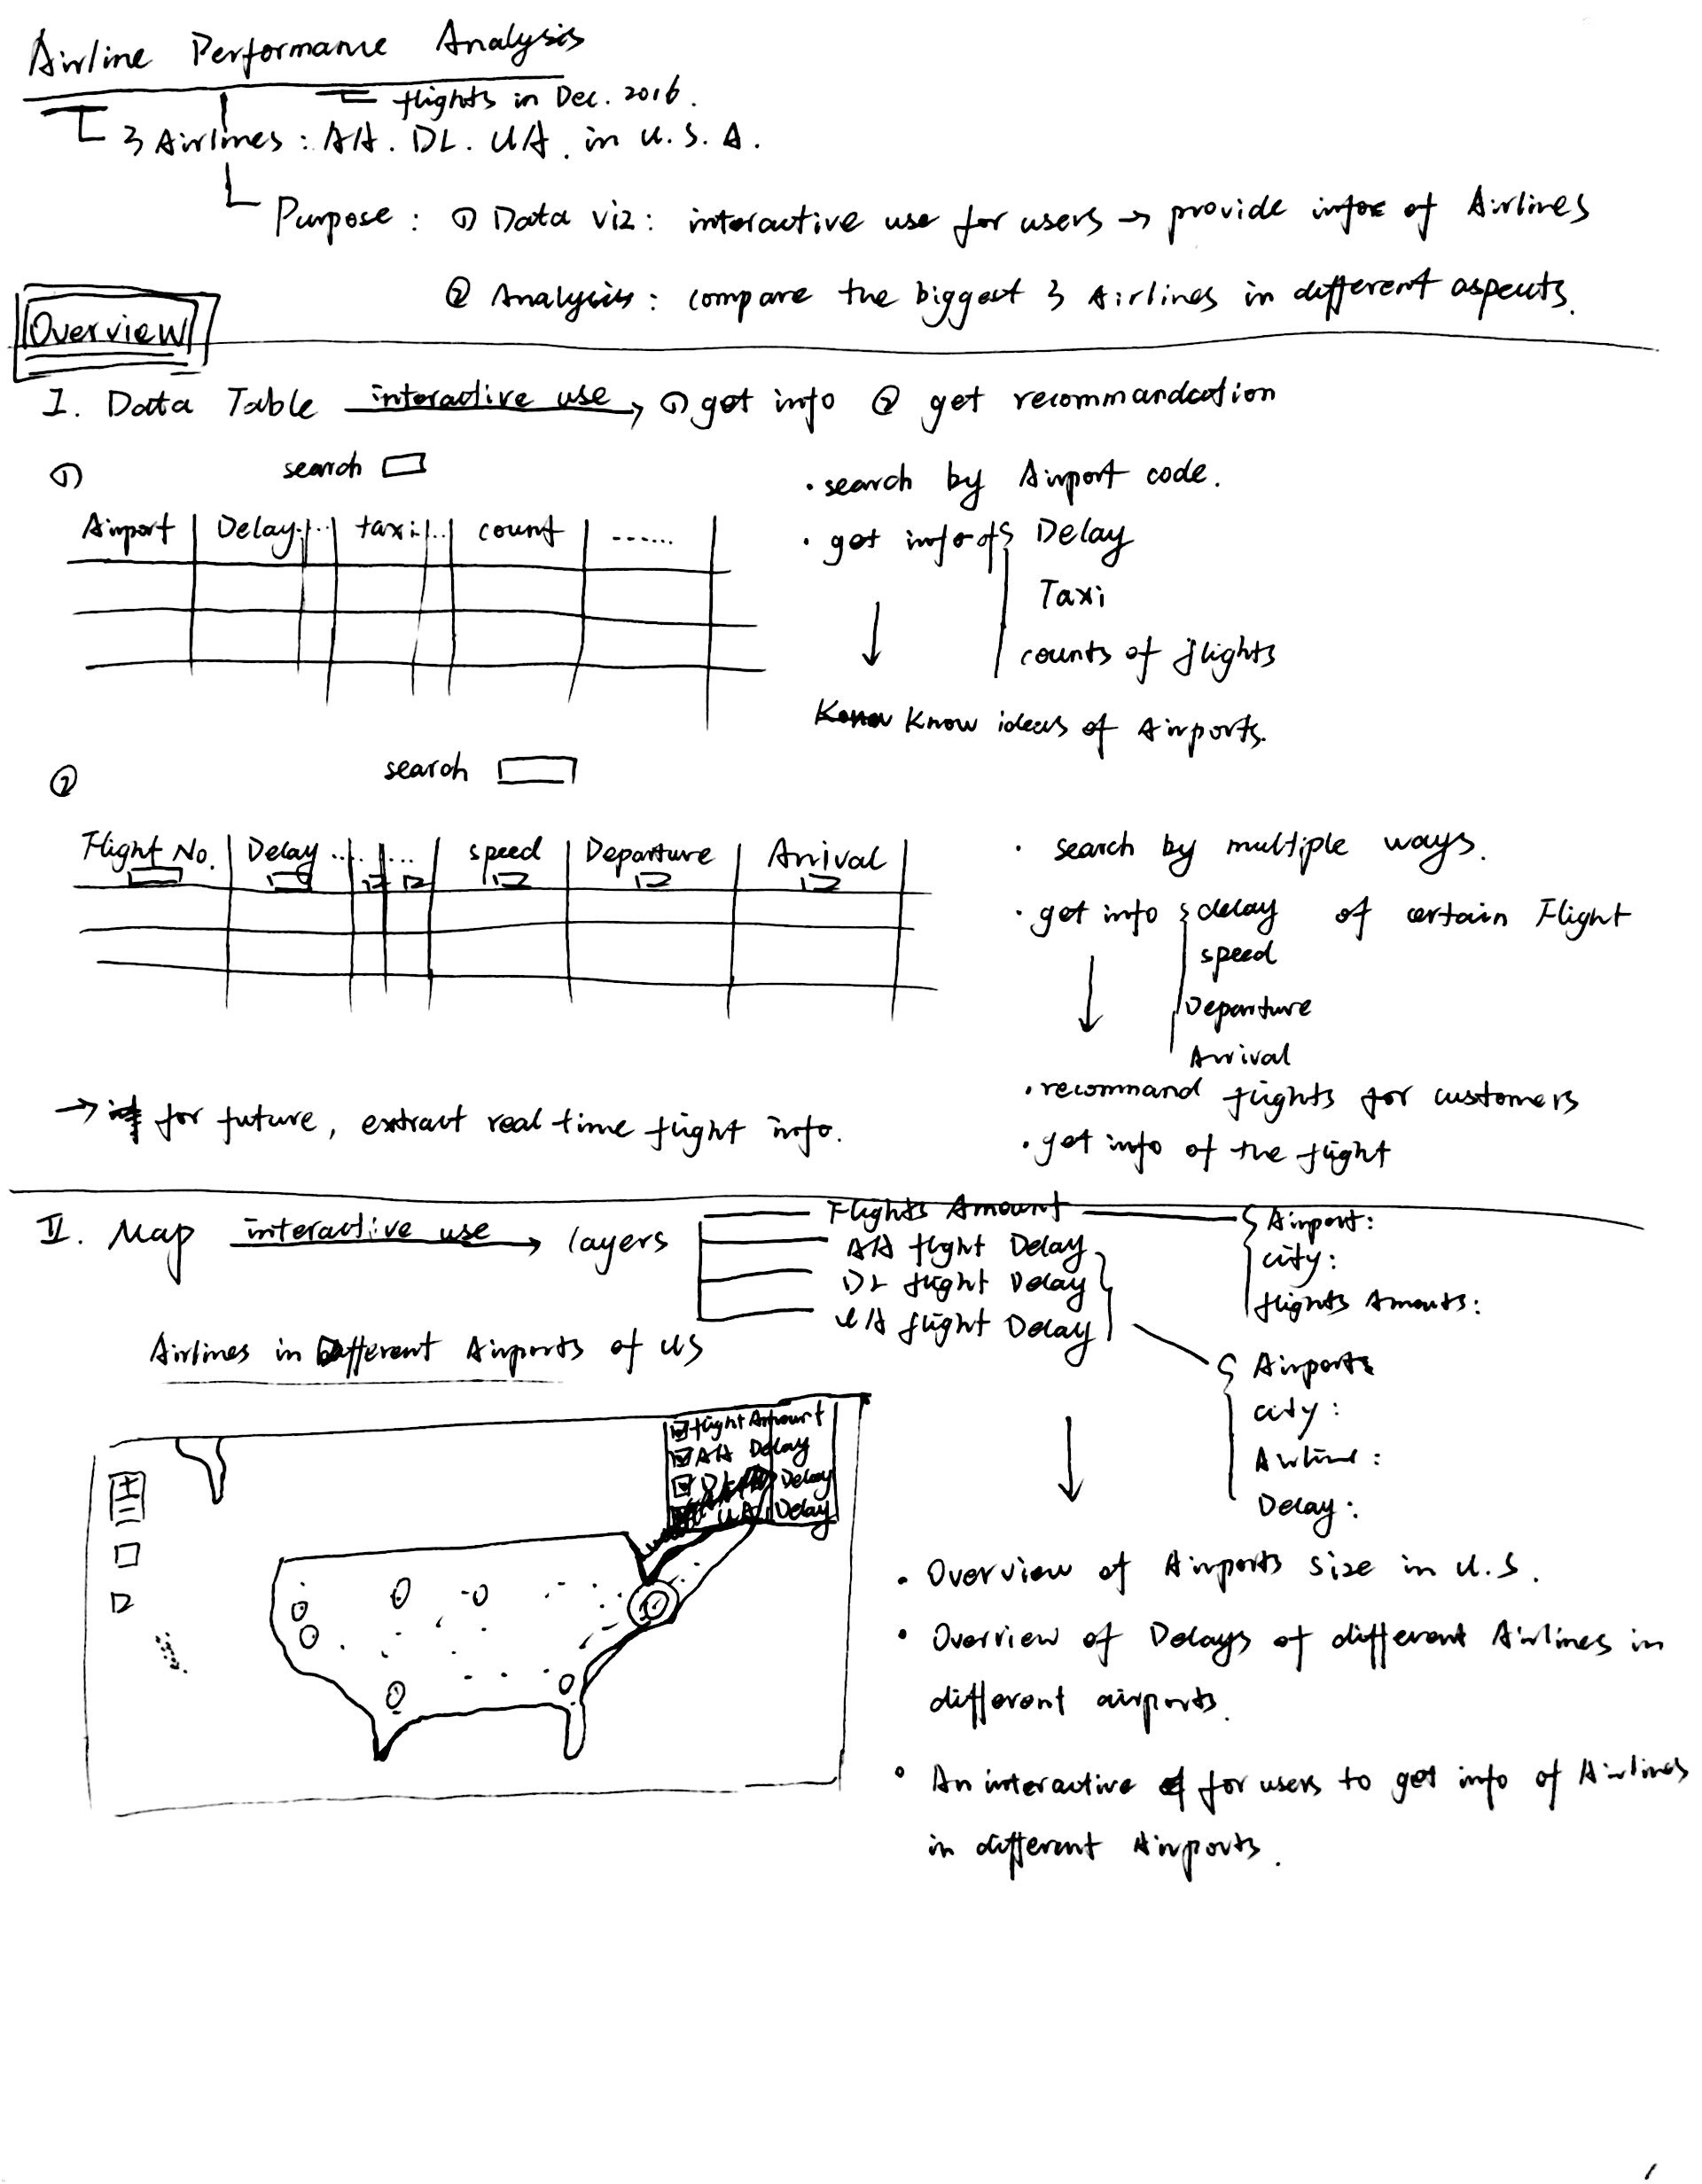 Airline Performance Analysis
flights in Dec. 2016.
3 Airlines : AA. DL. UA. in U.S.A.
Purpose : ① Data viz: interactive use for users → provide info of Airlines
② Analysis : compare the biggest 3 Airlines in different aspects.
Overview
I. Data Table interactive use → ① get info ② get recommandation
① search
Airport Delay ... taxi .. count ......
· search by Airport code.
· get info of { Delay
Taxi
counts of flights
↓
Know ideas of Airports.
② search
Flight No. Delay .... ... speed Departure Arrival
· search by multiple ways.
· get info { delay of certain Flight
speed
Departure
Arrival
↓
· recommand flights for customers
· get info of the flight
→ for future, extract real time flight info.
II. Map interactive use → layers
Flights Amount
AA flight Delay
DL flight Delay
UA flight Delay
{ Airport:
city:
flights Amouts:
{ Airports
city :
Airline :
Delay :
Airlines in Different Airports of US
flight Amount
AA Delay
DL Delay
UA Delay
↓
· Overview of Airports size in U.S.
· Overview of Delays of different Airlines in
different airports.
· An interactive for users to get info of Airlines
in different Airports.
1